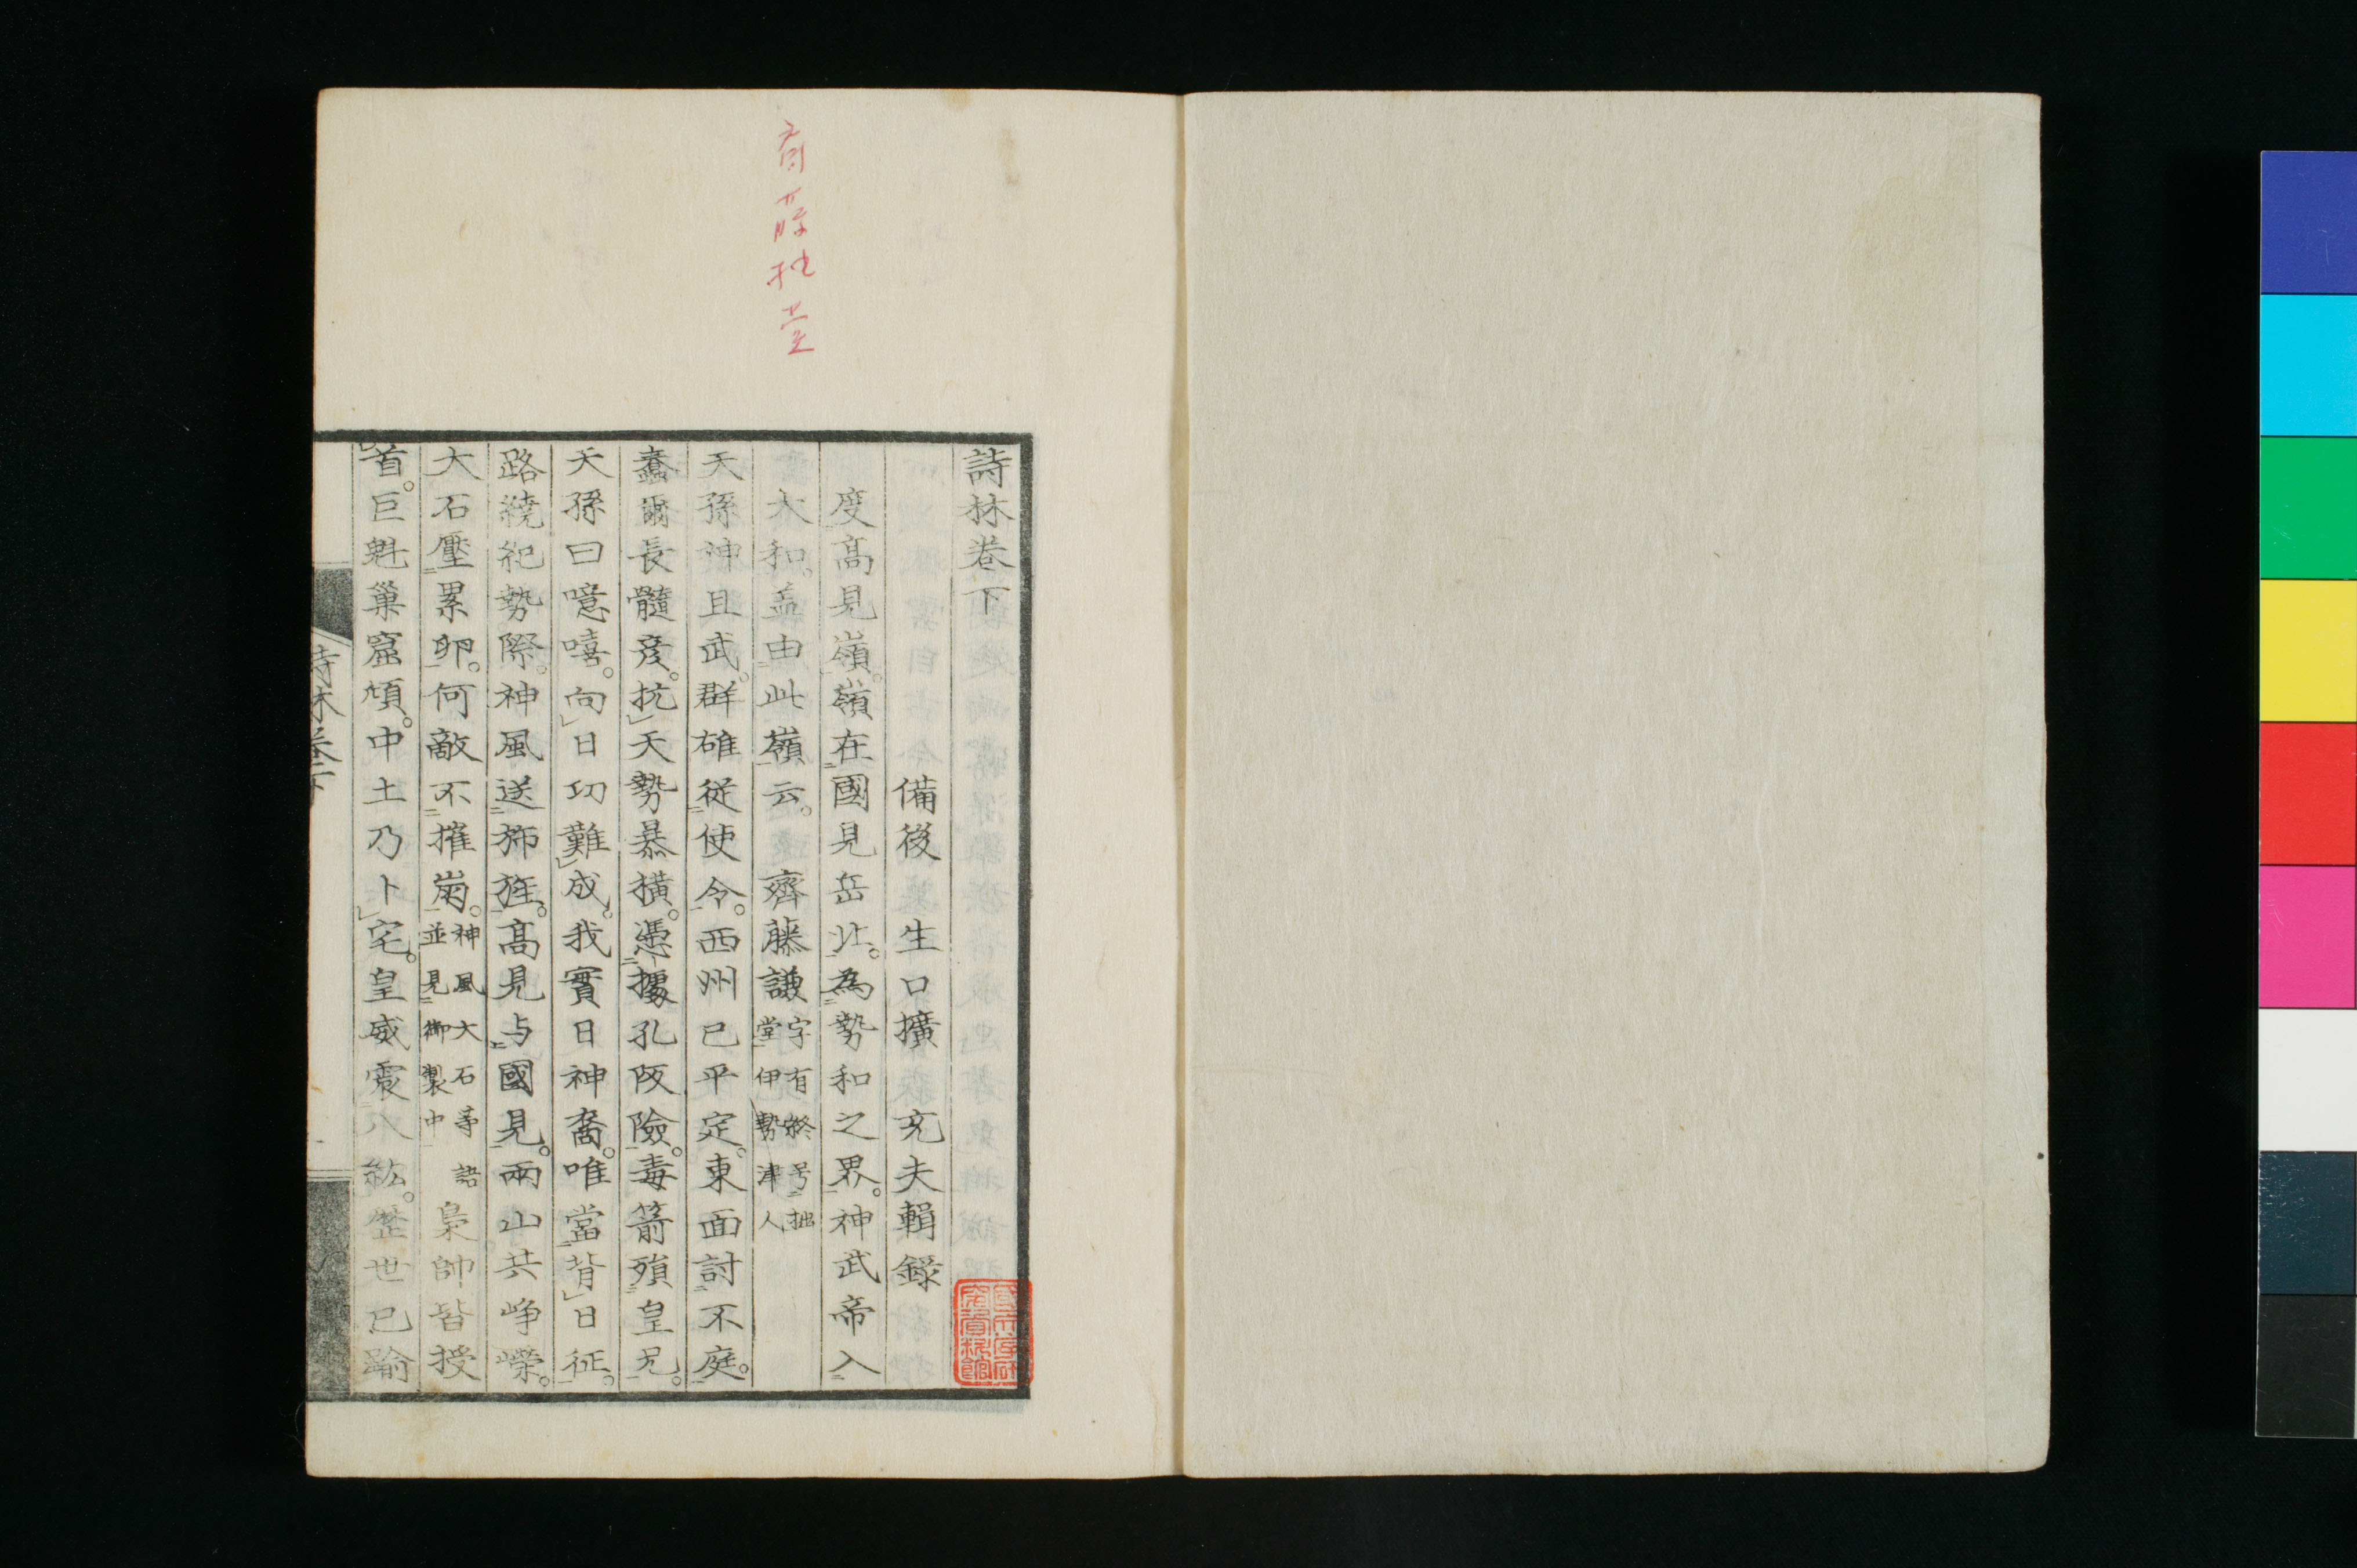 齋藤拙堂
詩林卷下
備後 生口擴 充夫輯錄
度高見嶺。嶺在國見岳北。為勢和之界。神武帝入
大和。盖由此嶺云。 齊藤謙 字有終号拙堂伊勢津人
天孫神且武。群雄從使令。西州已平定。東面討不庭。
蠢爾長髓彦。抗天勢暴橫。憑據孔阪險。毒箭殞皇兄。
天孫曰噫嘻。向日功難成。我實日神裔。唯當背日征。
路繞紀勢際。神風送斾旌。高見与國見。兩山共崢嶸。
大石壓累卵。何敵不摧崩。神風大石等語並見御製中 梟帥皆授
首。巨魁巢窟傾。中土乃卜宅。皇威震八紘。歷世已踰
詩林卷下